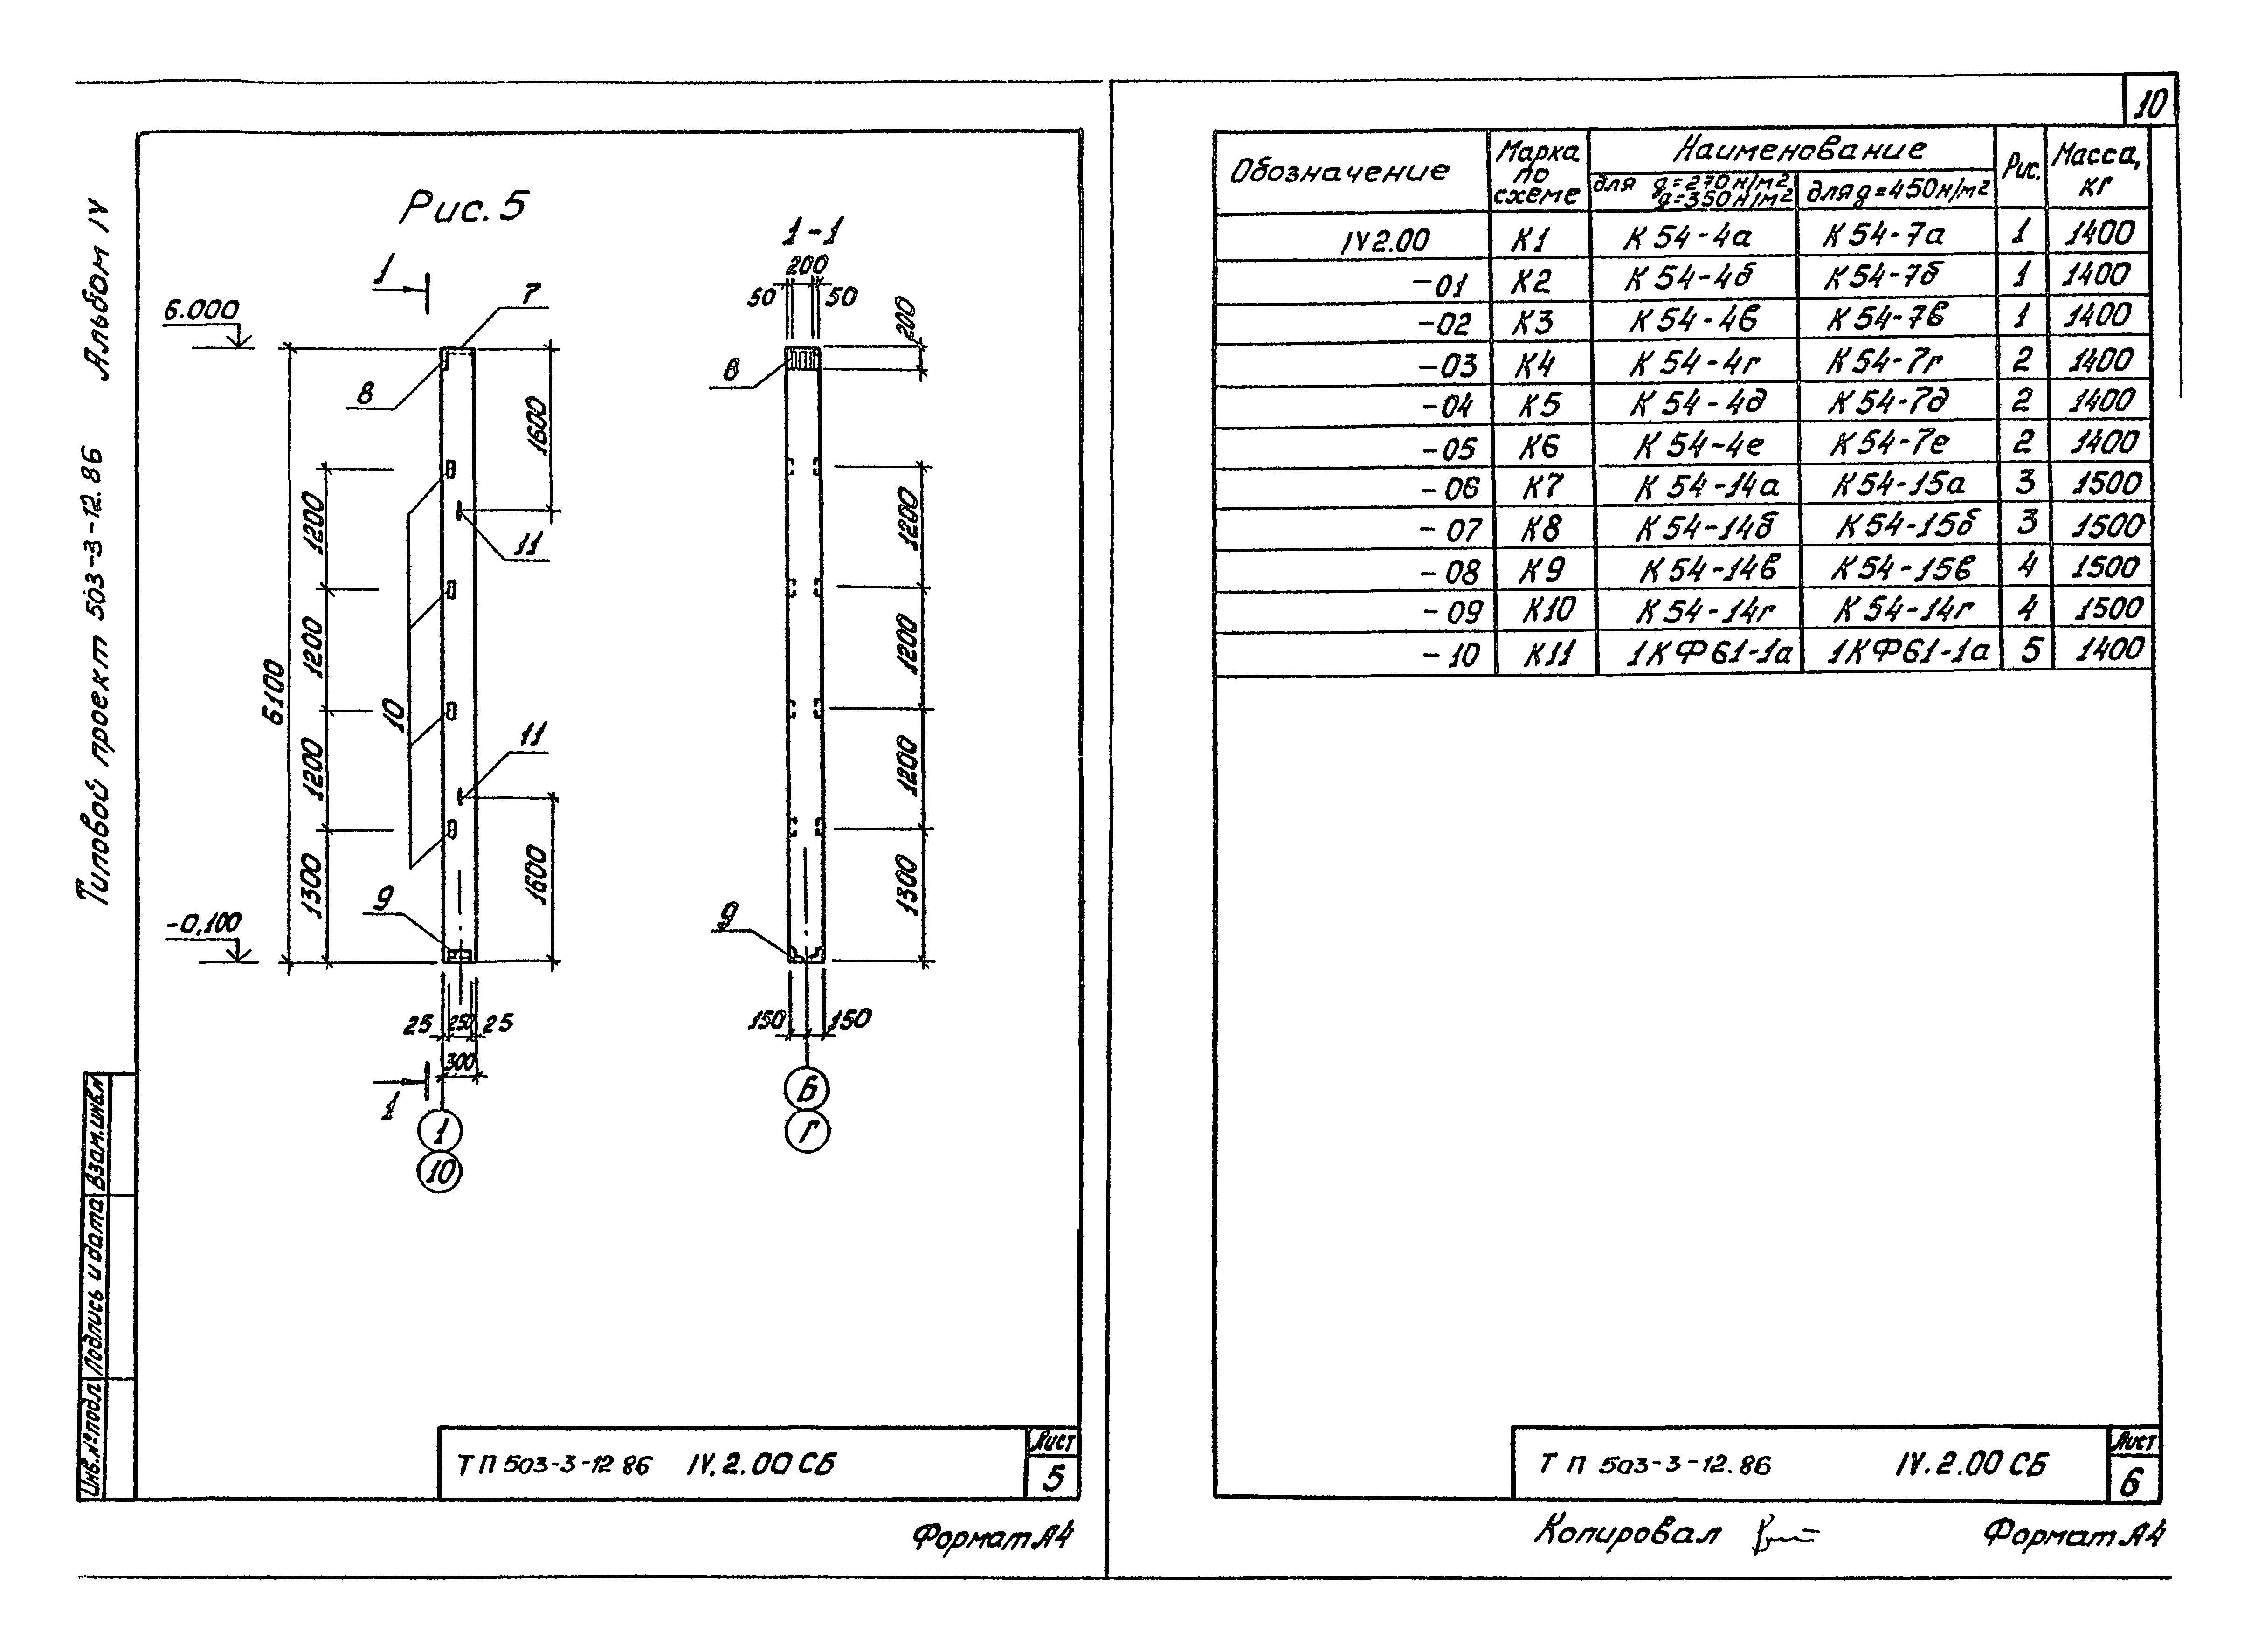 Типовой проект 503-3-12.86 Альбом IV
Рис. 5
1
7
6.000
8
1600
11
1200
1200
1200
1300
6100
10
11
1600
9
-0,100
25 250 25
300
1
1
10
1-1
200
50 50
200
8
1200
1200
1200
1300
9
150 150
Б
Г
Взам.инв.№
Подпись и дата
Инв.№подл
ТП 503-3-12 86 IV.2.00 СБ
Лист
5
Формат А4
10
Обозначение Марка по схеме Наименование Рис. Масса, кг
для g=270н/м2 g=350н/м2 для g=450н/м2
IV2.00 К1 К 54-4а К 54-7а 1 1400
-01 К2 К 54-4б К 54-7б 1 1400
-02 К3 К 54-4в К 54-7в 1 1400
-03 К4 К 54-4г К 54-7г 2 1400
-04 К5 К 54-4д К 54-7д 2 1400
-05 К6 К 54-4е К 54-7е 2 1400
-06 К7 К 54-14а К 54-15а 3 1500
-07 К8 К 54-14б К 54-15б 3 1500
-08 К9 К 54-14в К 54-15в 4 1500
-09 К10 К 54-14г К 54-14г 4 1500
-10 К11 1КФ61-1а 1КФ61-1а 5 1400
ТП 503-3-12.86 IV.2.00 СБ
Лист
6
Копировал
Формат А4